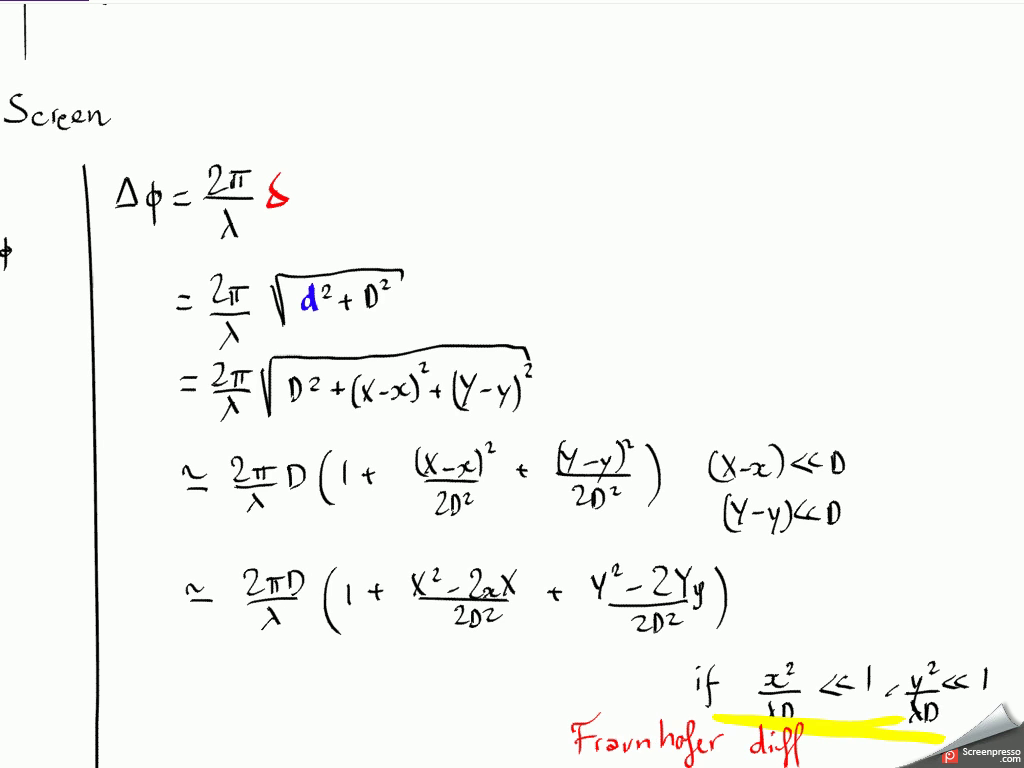 Screen
Δϕ = 2π/λ δ
ϕ
= 2π/λ √(d² + D²)
= 2π/λ √(D² + (X-x)² + (Y-y)²)
≃ 2π/λ D (1 + (X-x)²/2D² + (Y-y)²/2D²) (X-x) ≪ D
(Y-y) ≪ D
≃ 2πD/λ (1 + (X² - 2xX)/2D² + (Y² - 2Yy)/2D²)
if x²/λD ≪ 1, y²/λD ≪ 1
Fraunhofer diff
Screenpresso
.com